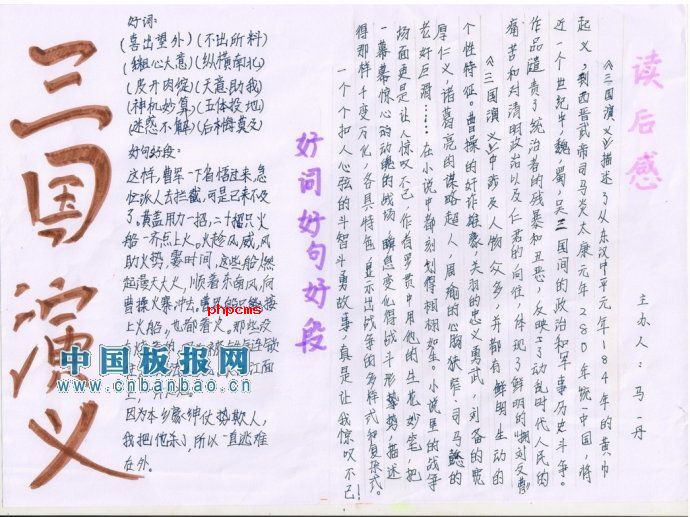 三国演义
好词:
(喜出望外)(不出所料)
(粗心大意)(纵横南北)
(皮开肉绽)(天意助我)
(神机妙算)(五体投地)
(迷惑不解)(后悔莫及)
好句好段:
这时,曹军一下省悟过来,急
忙派人去拦截,可是已来不及
了,黄盖用力一招,二十摆只火
船一齐点上火。火趁风威,风
助火势,霎时间,这些船燃
起漫天大火,顺着东南风,向
曹操火寨冲去。曹军船只
上火船,也都着火。那些
江面
因为本乡豪绅仗势欺人,
我把他杀了,所以一直逃难
在外。
好词好句好段
读后感
主办人:马丹
《三国演义》描述了从东汉中平元年184年的黄巾
起义,到西晋武帝司马炎太康元年280年统一中国,将
近一个世纪中,魏、蜀、吴三国间的政治和军事历史斗争。
作品谴责了统治者的残暴和丑恶,反映了动乱时代人民的
痛苦和对清明政治以及仁君的向往,体现了鲜明的
《三国演义》中涉及人物众多,并都有鲜明生动的
个性特征。曹操的奸诈雄豪,关羽的忠义勇武,刘备的宽
厚仁义,诸葛亮的谋略超人,周瑜的心胸狭窄,司马懿的
老奸巨滑……在小说中都刻划得栩栩如生。小说里的战争
场面更是让人惊叹不已,作者罗贯中用他的生花妙笔,把
一幕幕惊心的动魂的战场,瞬息变化得战斗形势,描述
得那样千变万化,各具特色,显示出战争的多样式和复杂式。
一个个扣人心弦的斗智斗勇故事,真是让我惊叹不已!
phpcms
中国板报网
www.cnbanbao.cn